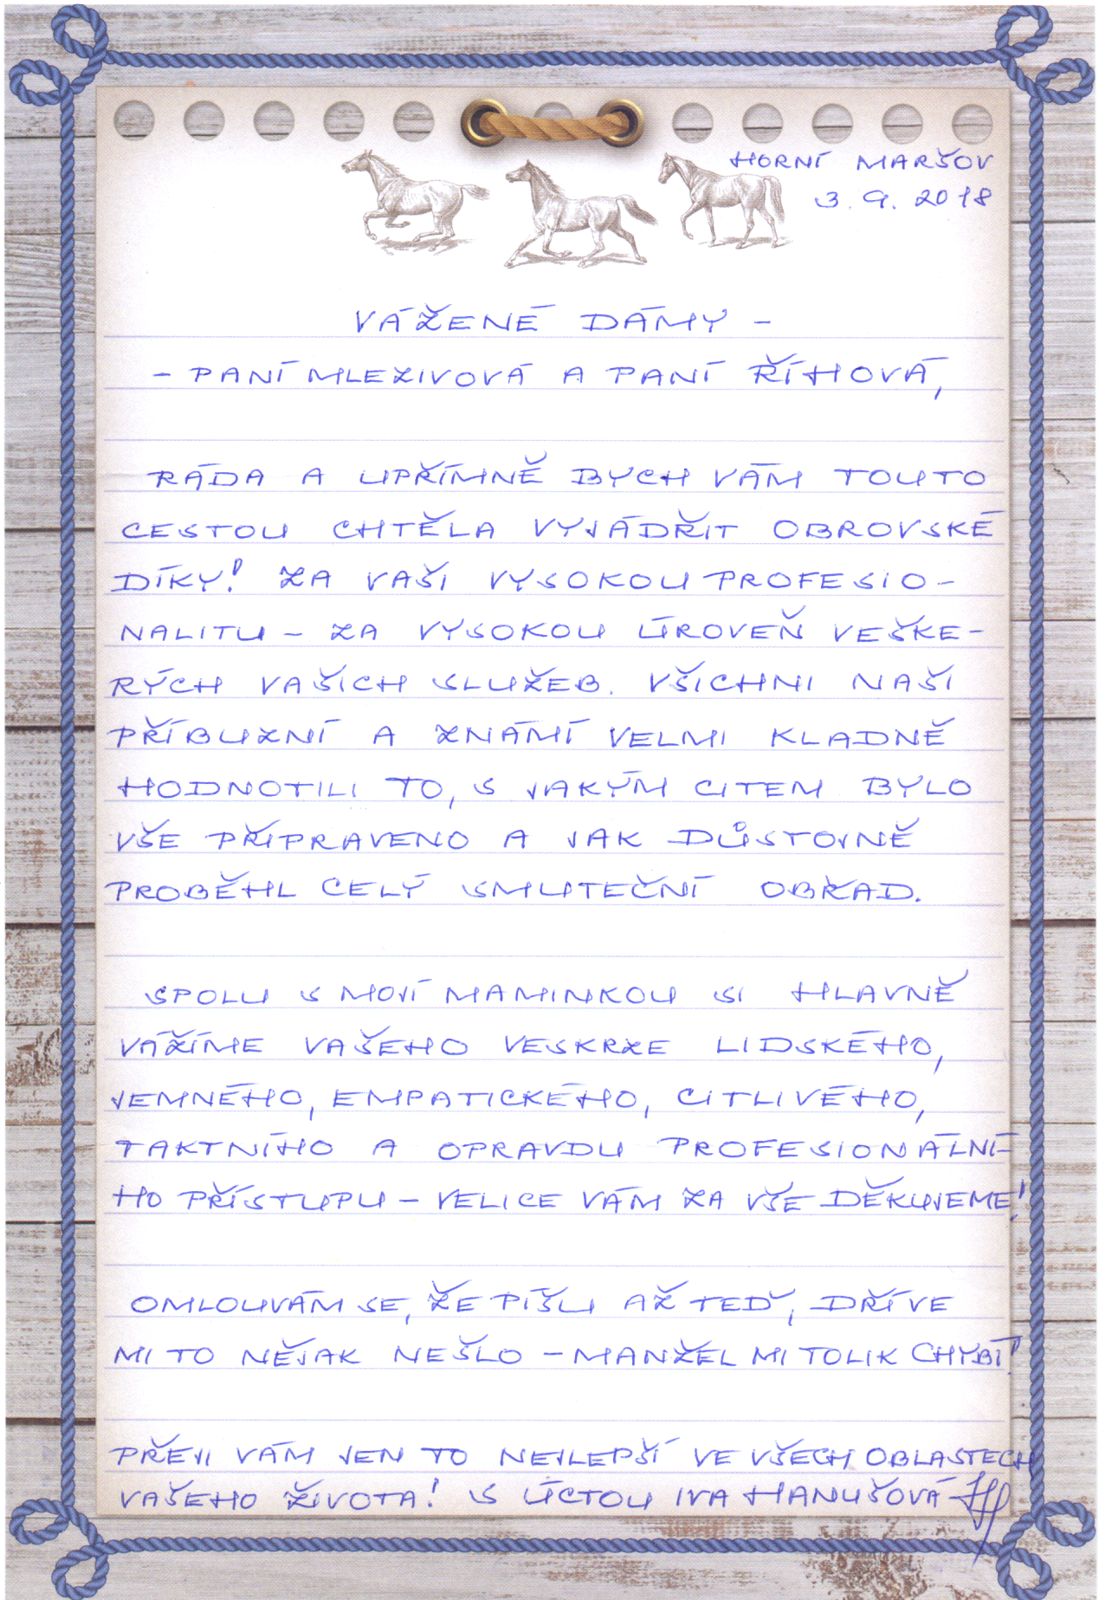 HORNÍ MARŠOV
3. 9. 2018
VÁŽENÉ DÁMY -
- PANÍ MLEZIVOVÁ A PANÍ ŘÍHOVÁ,
RÁDA A UPŘÍMNĚ BYCH VÁM TOUTO
CESTOU CHTĚLA VYJÁDŘIT OBROVSKÉ
DÍKY! ZA VAŠI VYSOKOU PROFESIO-
NALITU - ZA VYSOKOU ÚROVEŇ VEŠKE-
RÝCH VAŠICH SLUŽEB. VŠICHNI NAŠI
PŘÍBUZNÍ A ZNÁMÍ VELMI KLADNĚ
HODNOTILI TO, S JAKÝM CITEM BYLO
VŠE PŘIPRAVENO A JAK DŮSTOJNĚ
PROBĚHL CELÝ SMUTEČNÍ OBŘAD.
SPOLU S MOJÍ MAMINKOU SI HLAVNĚ
VÁŽÍME VAŠEHO VESKRZE LIDSKÉHO,
JEMNÉHO, EMPATICKÉHO, CITLIVÉHO,
TAKTNÍHO A OPRAVDU PROFESIONÁLNÍ-
HO PŘÍSTUPU - VELICE VÁM ZA VŠE DĚKUJEME!
OMLOUVÁM SE, ŽE PÍŠU AŽ TEĎ, DŘÍVE
MI TO NĚJAK NEŠLO - MANŽEL MI TOLIK CHYBÍ!
PŘEJI VÁM JEN TO NEJLEPŠÍ VE VŠECH OBLASTECH
VAŠEHO ŽIVOTA! S ÚCTOU IVA HANUŠOVÁ